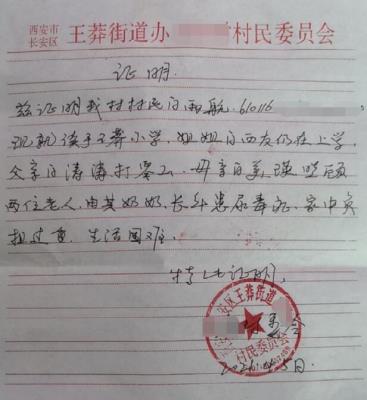 西安市
长安区 王莽街道办 村民委员会
证明.
兹证明我村村民 航. 610116
现就读于王莽小学,姐姐 仍在上学,
父亲 涛涛打零工. 母亲 照顾
两位老人,由其奶奶,长年患尿毒症,家中负
担过重.生活困难.
特此证明.
安区王莽街道
委会
村民委员会
日